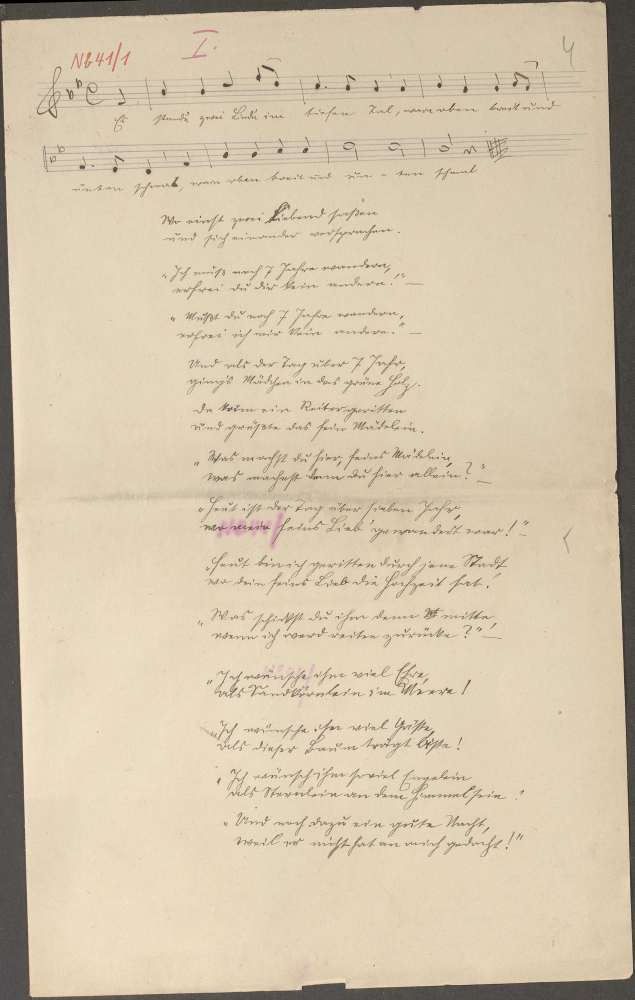 Nb41/1 I. 4
Es stands zwei Linden im tiefen Tal, warn oben breit und
unten schmal, warn oben breit und un - ten schmal
Wo einst zwei Liebend saßen
und sich einander versprachen.
"Ich muß noch 7 Jahre wandern,
erfrei du dir kein andern!" —
"Mußt du noch 7 Jahre wandern,
erfrei ich mir kein andern." —
Und als der Tag über 7 Jahr,
ging's Mädchen in das grüne Holz.
Da kam ein Reiter geritten
und grüßte das fein Mädelein.
"Was machst du hier, feines Mädelein,
was machest denn du hier allein?" —
"Heut ist der Tag über sieben Jahr,
wo mein feins Lieb' gewandert war!" —
"Heut bin ich geritten durch jene Stadt
wo dein feins Lieb die Hochzeit hat.'
"Was schickst du ihm denn mitte,
wenn ich werd reiten zurücke?" —
"Ich wünsche ihm viel Ehre,
als Sandkörnlein im Meere!
Ich wünsche ihm viel Gäste,
als dieser Baum trägt Äste!
"Ich wünsch ihm soviel Engelein
als Sternlein an dem Himmel sein!
"Und noch dazu ein gute Nacht,
weil er nicht hat an mich gedacht!"